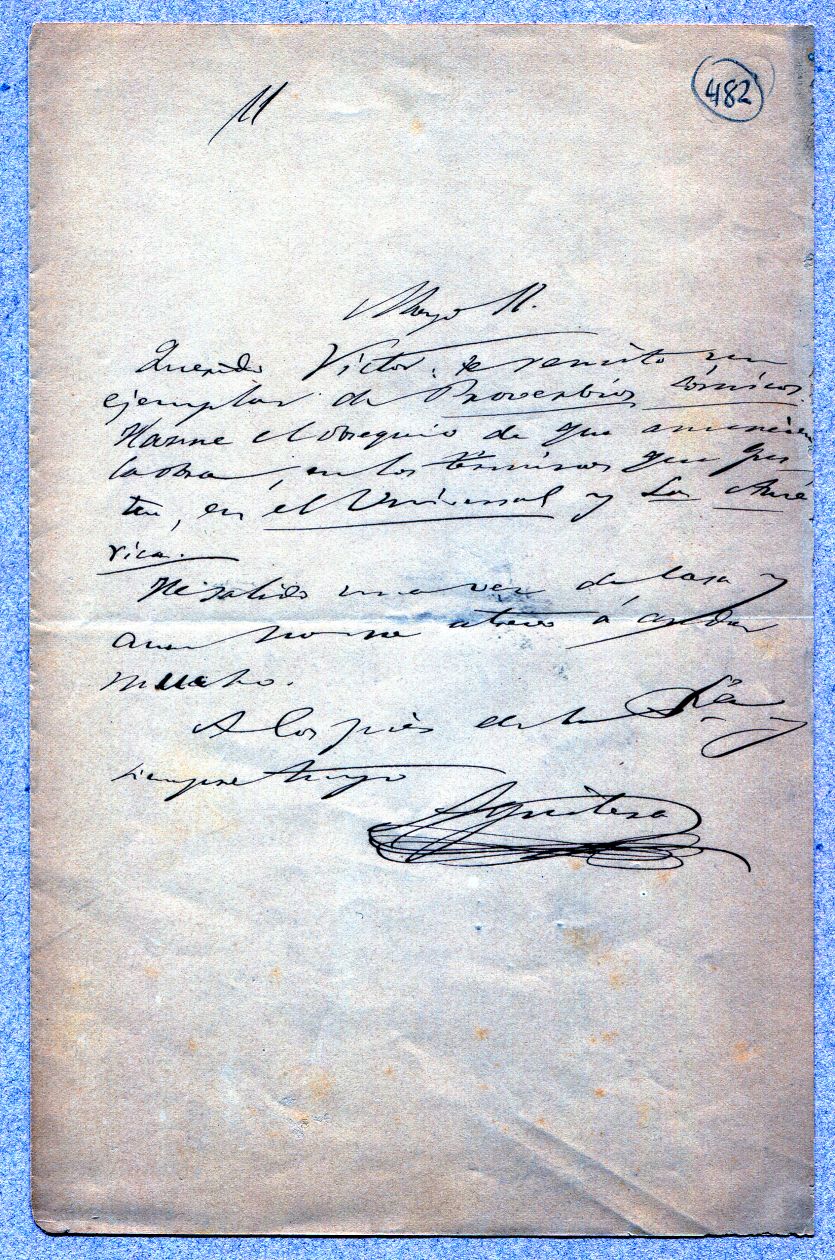 482
11
Mayo 11.
Querido Victor: te remito un
ejemplar de Proverbios cómicos.
Hazme el obsequio de que anuncien
la obra, en los términos que gus-
ten, en el Universal y La Amé-
rica.
He salido una vez de casa y
aun no me atrevo á andar
mucho.
A los piés de la Sra y
siempre tuyo
Aguilera